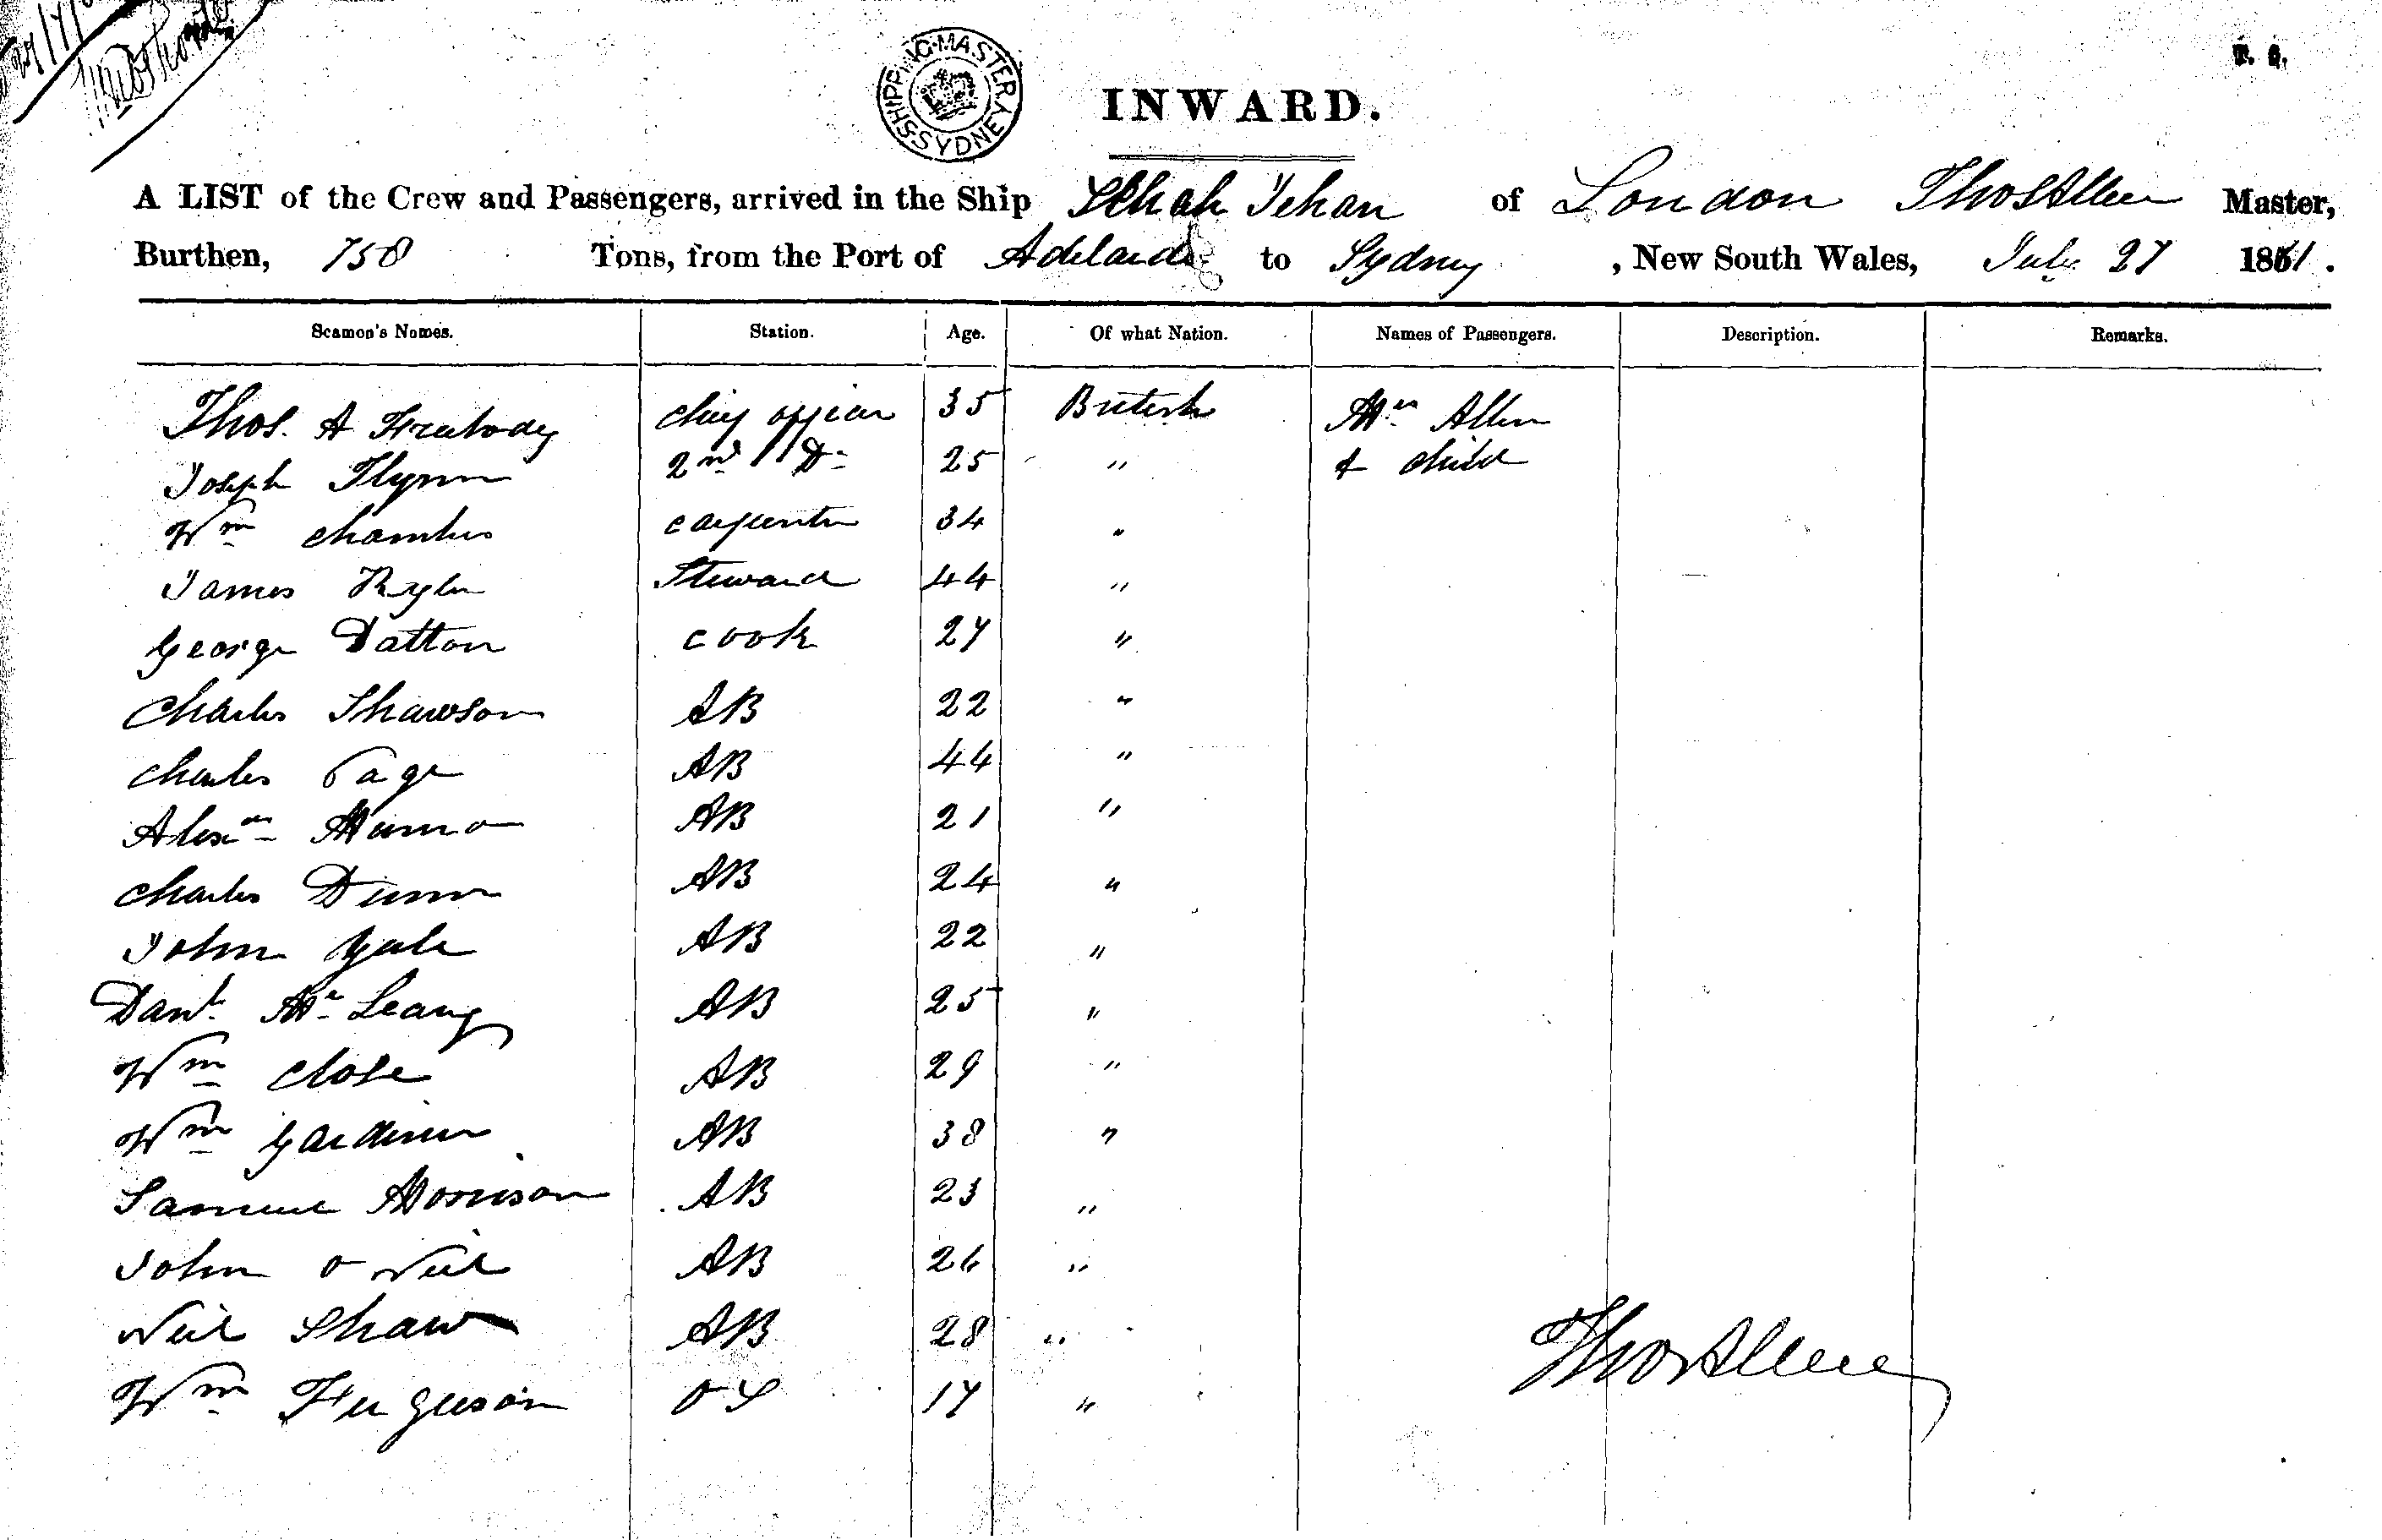 SHIPPING MASTER SYDNEY
INWARD.
A LIST of the Crew and Passengers, arrived in the Ship Schah Jehan of London Thos Allen Master,
Burthen, 758 Tons, from the Port of Adelaide to Sydney, New South Wales, July 27 1861.
Seamen's Names. Station. Age. Of what Nation. Names of Passengers. Description. Remarks.
Thos. A Freebody chief officer 35 British Mrs Allen
Joseph Flynn 2nd Do 25 " & child
Wm Chambers carpenter 34 "
James Steward 44 "
George Datton cook 27 "
Charles Thawson AB 22 "
Charles Page AB 44 "
Alexr Munro AB 21 "
Charles Dunn AB 24 "
John Yule AB 22 "
Danl Mc Leang AB 25 "
Wm Close AB 29 "
Wm Gardiner AB 38 "
Samuel Morrison AB 23 "
John O Neil AB 26 "
Neil Shaw AB 28 "
Wm Furguson OS 17 "
Thos Allen